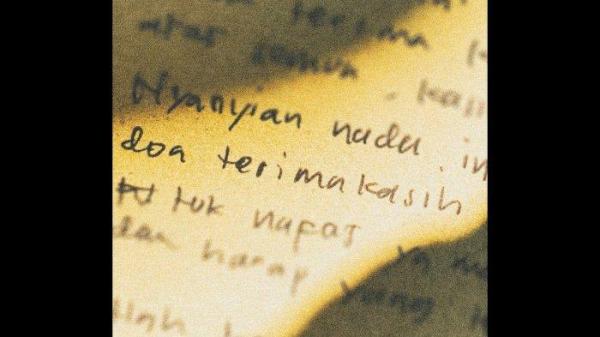 terima k
atas semua. kasi
Nyanyian nada in
doa terimakasih
tuk napas ya
dan harap yang